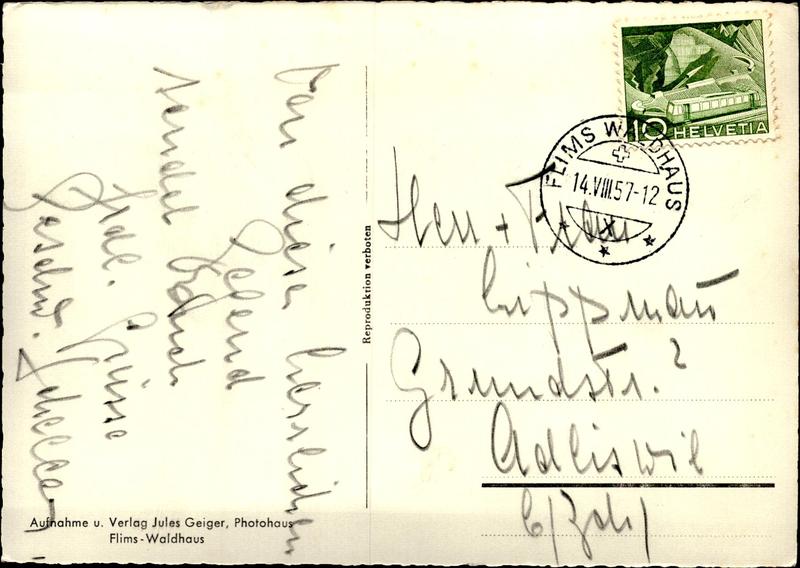 Von dieser herrlichen
Gegend
sendet Euch
frdl. Grüsse
Geschw.
Reproduktion verboten
Aufnahme u. Verlag Jules Geiger, Photohaus
Flims-Waldhaus
10 HELVETIA
FLIMS WALDHAUS
14.VIII.57-12
X
Herr + Frau
Lippmann
Grundstr. 2
Adliswil
b/Zch/